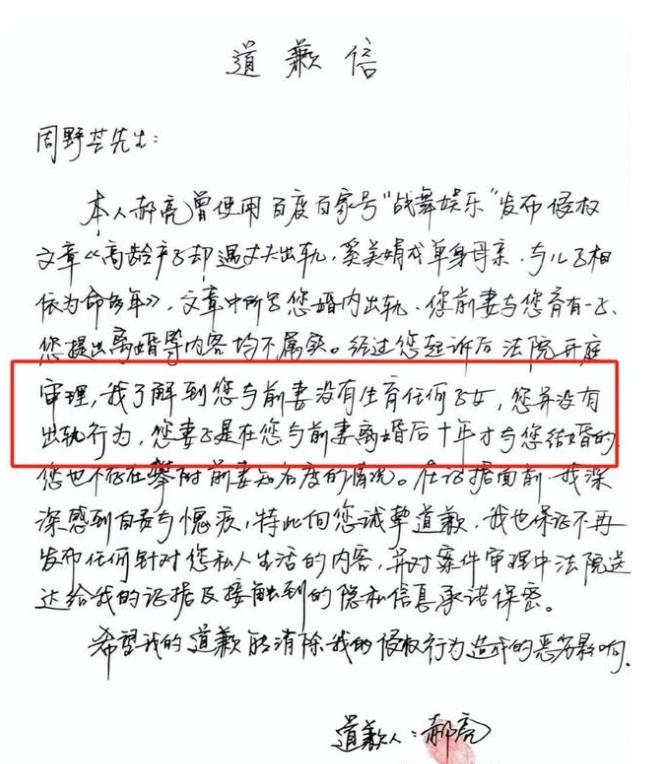 道歉信
周野芒先生：
本人郝亮曾使用百度百家号"战舞娱乐"发布侵权
文章《高龄产子却遇丈夫出轨，奚美娟成单身母亲，与儿子相
依为命多年》，文章中所写您婚内出轨、您前妻与您育有一子、
您提出离婚等内容均不属实。经过您起诉后法院开庭
审理，我了解到您与前妻没有生育任何子女，您并没有
出轨行为，您妻子是在您与前妻离婚后十年才与您结婚的，
您也不存在攀附前妻知名度的情况。在证据面前，我深
深感到自责与愧疚，特此向您诚挚道歉，我也保证不再
发布任何针对您私人生活的内容，并对案件审理中法院送
达给我的证据及接触到的隐私信息承诺保密。
希望我的道歉能消除我的侵权行为造成的恶劣影响。
道歉人：郝亮